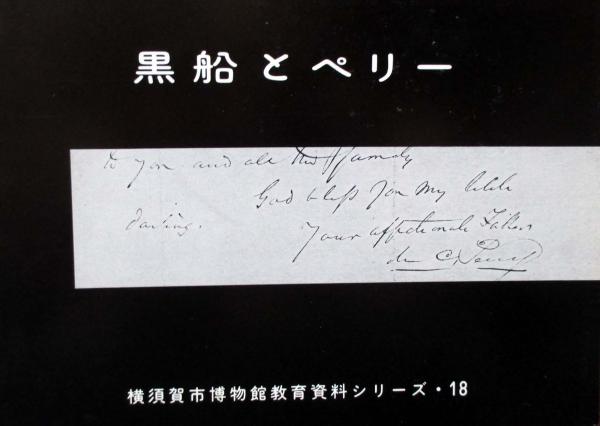 黒船とペリー
to you and all the family
God bless you my little
darling.
Your affectionate Father
M. C. Perry
横須賀市博物館教育資料シリーズ・18